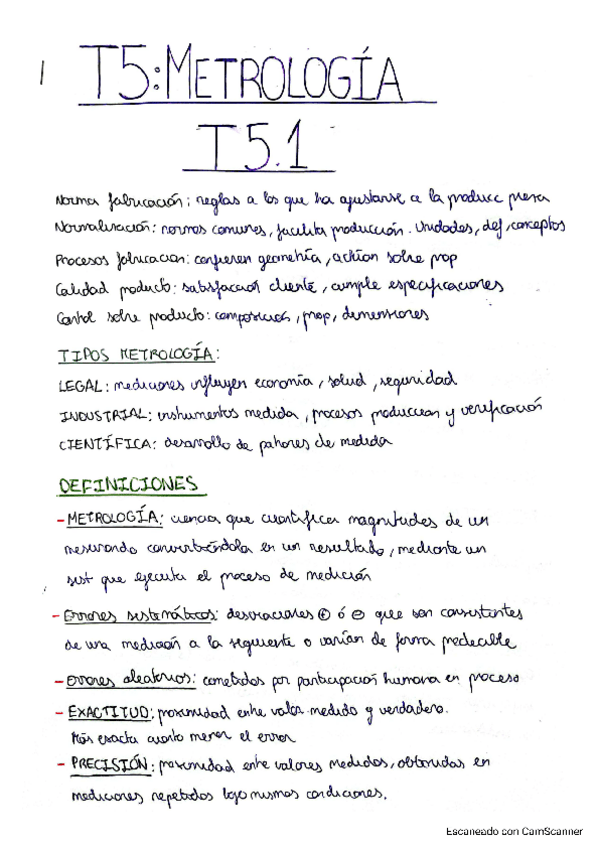 1
T5: METROLOGÍA
T5.1
Norma fabricación: reglas a los que ha ajustarse a la produce pieza
Normalización: normas comunes, facilita producción. Unidades, def, conceptos
Procesos fabricacion: confieren geometría, actúan sobre prop
Calidad producto: satisfacción cliente, cumple especificaciones
Control sobre producto: composición, prop, dimensiones
TIPOS METROLOGÍA:
LEGAL: mediciones influyen economía, salud, seguridad
INDUSTRIAL: instrumentos medida, procesos produccion y verificación
CIENTÍFICA: desarrollo de patrones de medida
DEFINICIONES
- METROLOGÍA: ciencia que cuantifica magnitudes de un
mesurando convirtiéndola en un resultado, mediante un
sist que ejecuta el proceso de medición
- Errores sistemáticos: desviaciones ⊕ ó ⊖ que son consistentes
de una medición a la siguiente o varían de forma predecible
- errores aleatorios: cometidos por participación humana en proceso
- EXACTITUD: proximidad entre valor medido y verdadero.
Más exacta cuanto menor el error
- PRECISIÓN: proximidad entre valores medidos, obtenidas en
mediciones repetidas bajo mismas condiciones.
Escaneado con CamScanner